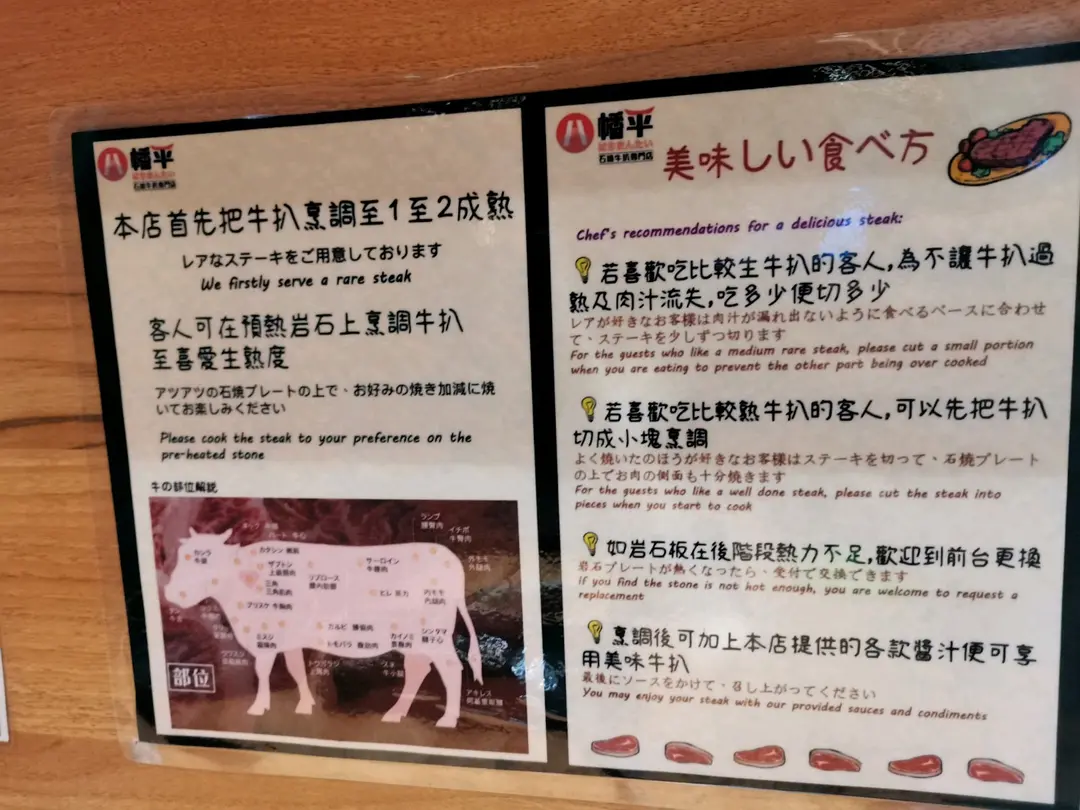 幡平
石燒牛扒專門店
本店首先把牛扒烹調至1至2成熟
レアなステーキをご用意しております
We firstly serve a rare steak
客人可在預熱岩石上烹調牛扒
至喜愛生熟度
アツアツの石焼プレートの上で、お好みの焼き加減に焼
いてお楽しみください
Please cook the steak to your preference on the
pre-heated stone
牛の部位解説
ランプ
イチボ
カシラ
カタシン
ザブトン
三角
リブロース
サーロイン
外モモ
ヒレ
内モモ
ブリスケ 牛胸肉
ミスジ
カルビ
トモバラ
カイノミ
シンタマ
トウガラシ
スネ
アキレス
部位
幡平
石燒牛扒專門店
美味しい食べ方
Chef's recommendations for a delicious steak:
若喜歡吃比較生牛扒的客人,為不讓牛扒過
熟及肉汁流失,吃多少便切多少
レアが好きなお客様は肉汁が漏れ出ないように食べるベースに合わせ
て、ステーキを少しずつ切ります
For the guests who like a medium rare steak, please cut a small portion
when you are eating to prevent the other part being over cooked
若喜歡吃比較熟牛扒的客人,可以先把牛扒
切成小塊烹調
よく焼いたのほうが好きなお客様はステーキを切つて、石焼プレート
の上でお肉の側面も十分焼きます
For the guests who like a well done steak, please cut the steak into
pieces when you start to cook
如岩石板在後階段熱力不足,歡迎到前台更換
岩石プレートが熱くなったら、受付で交換できます
if you find the stone is not hot enough, you are welcome to request a
replacement
烹調後可加上本店提供的各款醬汁便可享
用美味牛扒
最後にソースをかけて、召し上がってください
You may enjoy your steak with our provided sauces and condiments